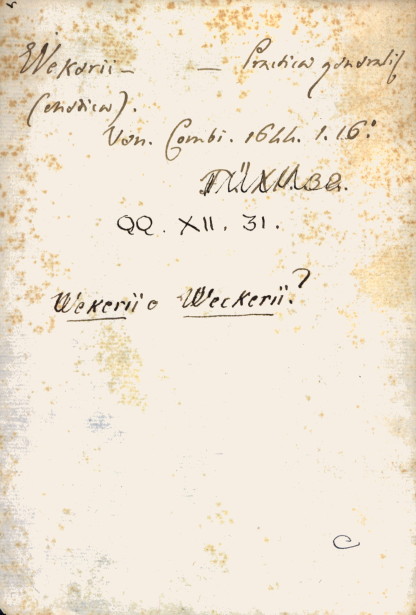 Wekerii — — Practica generalis
(medica).
Ven. Combi. 1644. 1. 16º
QQ. XII. 31.
Wekerii o Weckerii?
C